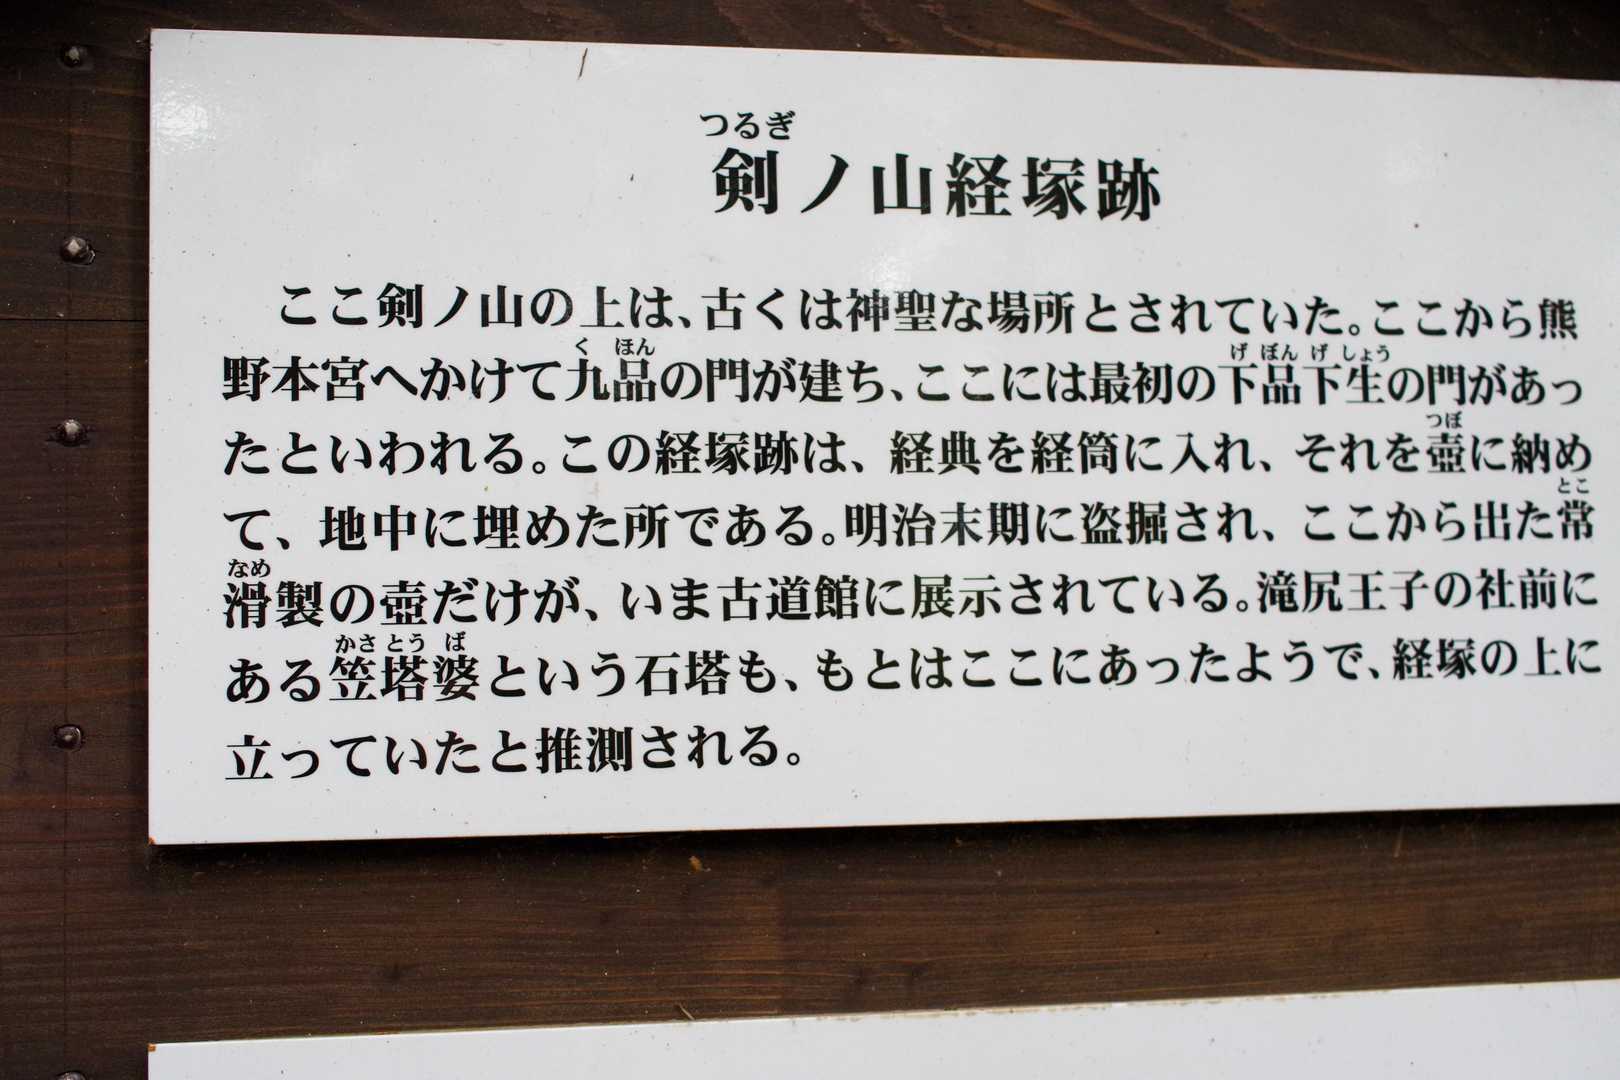 つるぎ
剣ノ山経塚跡
ここ剣ノ山の上は、古くは神聖な場所とされていた。ここから熊
く ほん げ ぼん げ しょう
野本宮へかけて九品の門が建ち、ここには最初の下品下生の門があっ
つぼ
たといわれる。この経塚跡は、経典を経筒に入れ、それを壺に納め
とこ
て、地中に埋めた所である。明治末期に盗掘され、ここから出た常
なめ
滑製の壺だけが、いま古道館に展示されている。滝尻王子の社前に
かさ とう ば
ある笠塔婆という石塔も、もとはここにあったようで、経塚の上に
立っていたと推測される。